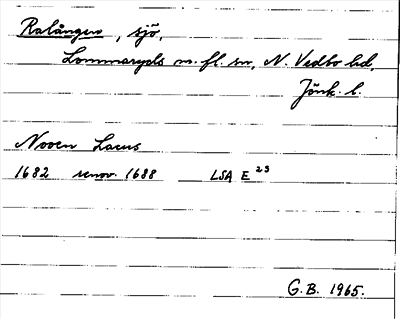 Ralången, sjö,
Lommaryds m. fl. sn, N. Vedbo hd,
Jönk. l.
Nooen Lacus
1682 renov. 1688 LSA E 23
G.B. 1965.